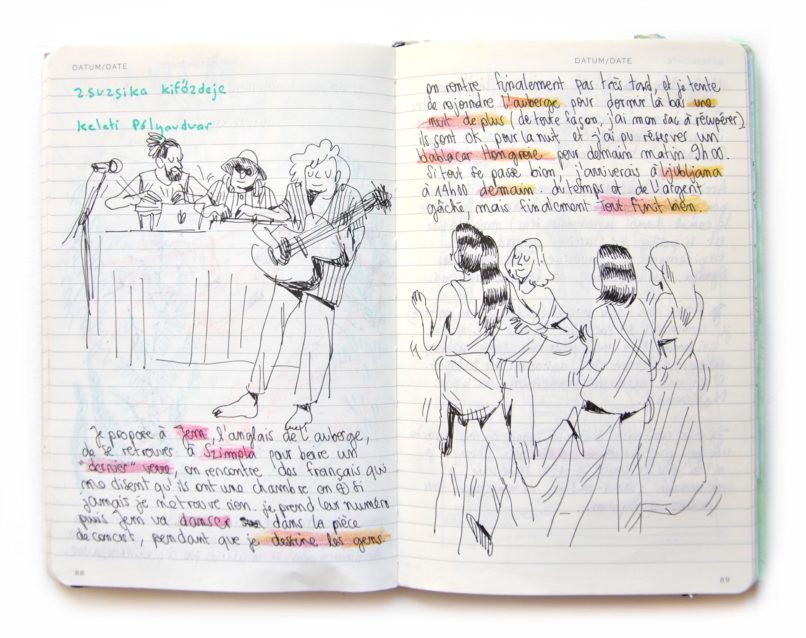 DATUM/DATE
zsuzsika kifőzdeje
keleti Pályaudvar
Je propose à Jem, l'anglais de l'auberge,
de se retrouver à Szimpla pour boire un
"dernier" verre, on rencontre des français qui
me disent qu'ils ont une chambre en + si
jamais je ne trouve rien. je prend leur numéro
puis Jem va danser dans la pièce
de concert, pendant que je dessine les gens.
88
DATUM/DATE
on rentre finalement pas très tard, et je tente
de rejoindre l'auberge pour dormir là bas une
nuit de plus (de toute façon, j'ai mon sac à récupérer)
ils sont ok pour la nuit et j'ai pu réserver un
blablacar Hongroie pour demain matin 9h00.
Si tout se passe bien, j'arriverais à Ljubljana
à 14h00 demain du temps et de l'argent
gâché, mais finalement tout finit bien.
89